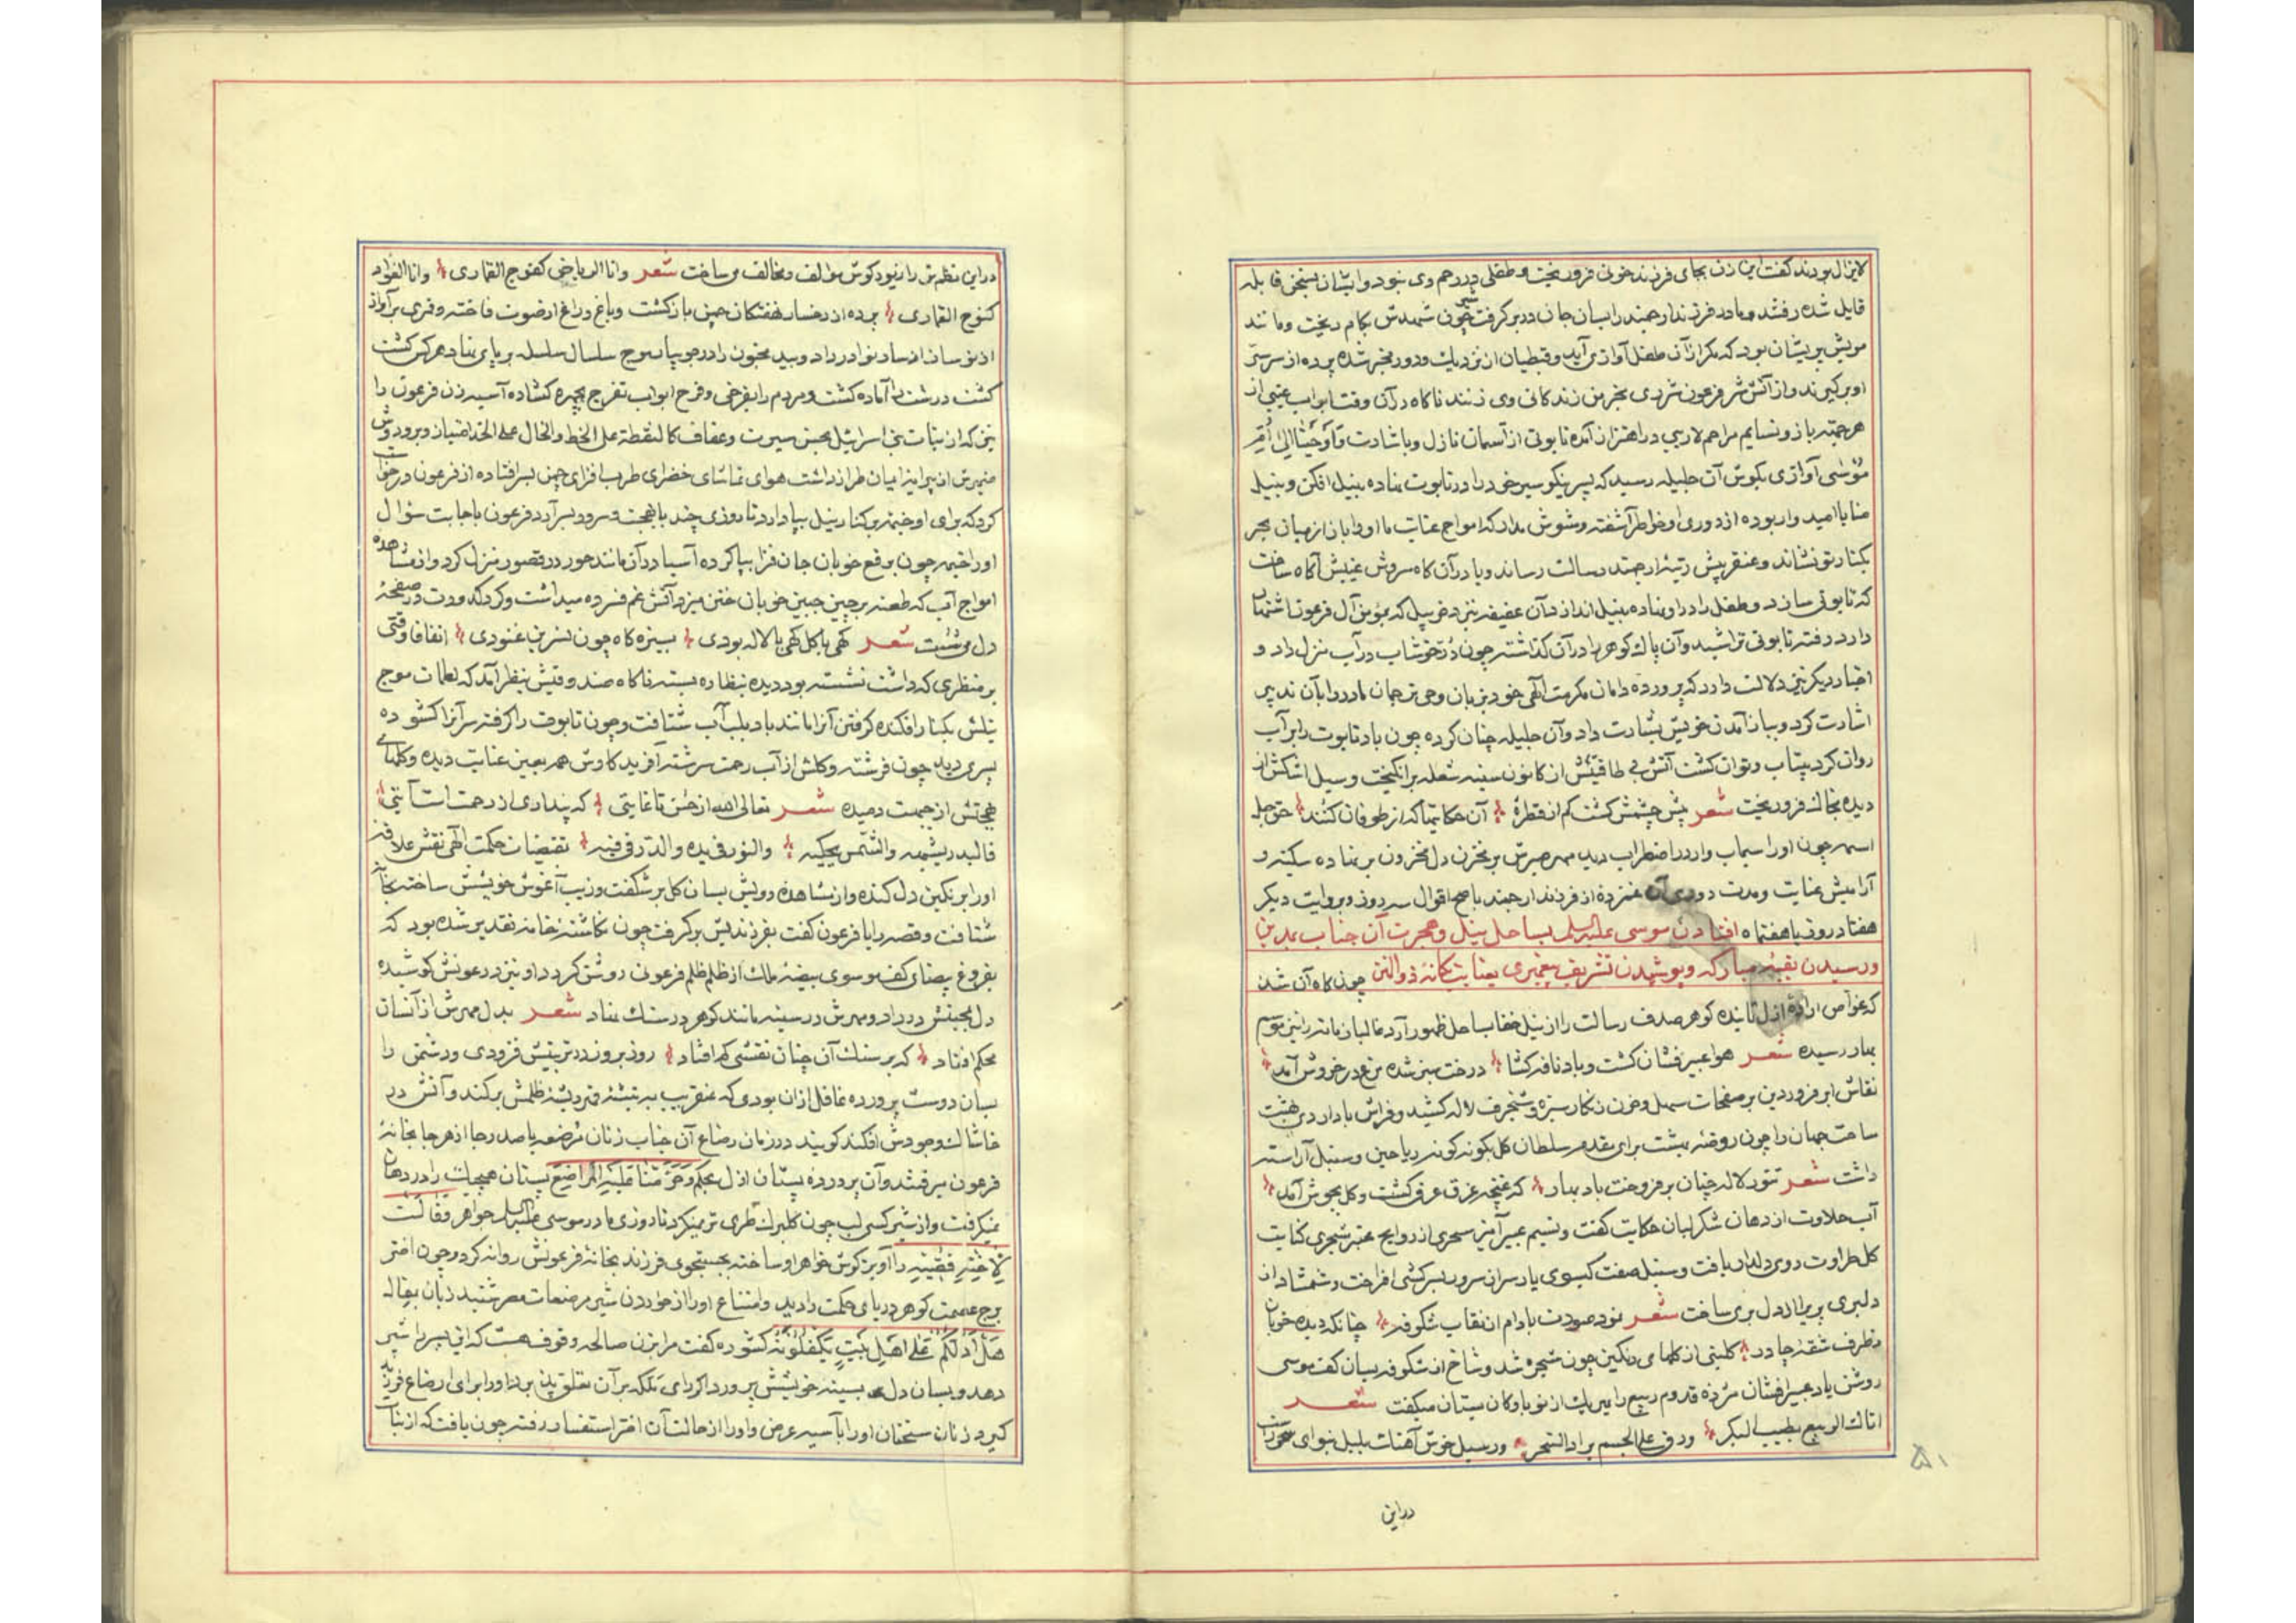 لایزال بودند کفت این زن بجای فرزند خونی فرو ریخت و طفلی در رحم وی نبود و ایشان بسخن قابله
قایل شده رفتند و مادر فرزند ارجمند را بسان جان در بر کرفت چون شهدش شیر بکام ریخت و مانند
مویش پریشان بود که مکر از آن طفل آوازی برآید و قبطیان از نزدیک و دور مخبر شده پرده از سر سرّ
او بر کیرند و از آتش شر فرعون شرری بخرمن زندکانی وی زنند ناکاه در آن وقت ابواب غیبی از
هر جهة باز و نسایم مراحم لاریبی در اهتزاز آمده تابوتی از آسمان نازل و باشارت فَاَوْحَیْنا اِلیٰ اُمِّ
مُوسٰی آوازی بکوش آن جلیله رسید که پسر نیکو سیر خود را در تابوت نهاده بنیل افکن و بنیل
منایا امیدوار بوده از دوری او خاطر آشفته و مشوش مدار که امواج عنایت ما او را باز از میان بحر
بکنار تو نشاند و عنقریبش رتبهٔ ارجمند رسالت رساند و مادر آن کاه سروش غیبیش آکاه ساخت
که تابوتی سازد و طفل را در او نهاده بنیل اندازد آن عفیفه نزد خربیل که بمؤمن آل فرعون اشتهار
دارد رفته تابوتی تراشید و آن پاک کوهر را در آن کذاشته چون دُرّ خوشاب در آب منزل داد و
اخبار دیکر نیز دلالت دارد که پرورده دامان مکرمت الٓهی خود بزبان وحی ترجمان مادر را بآن تدبیر
اشارت کرد و بباز آمدن خویش بشارت داد و آن جلیله چنان کرده چون باد تابوت را بر آب
روان کرد بیتاب و توان کشت آتش بی طاقتیش از کانون سینه شعله برانکیخت و سیل اشکش از
دیده بخاک فرو ریخت شعر پیش چشمش کشت کم از قطرهٔ آن حکایتها که از طوفان کنند حق جل
اسمه چون او را سیماب وار در اضطراب دید مهر صبرش بر مخزن دل محزون بر نهاده سکینه و
آرامیش عنایت و مدت دوری آن غمزده از فرزند ارجمند باصح اقوال سه روز و بروایت دیکر
هفتاد روز یا هفتماه افتادن موسی علیه السلم بساحل نیل و هجرت آن جناب بمدین
و رسیدن بقبهٔ مبارکه و پوشیدن تشریف پیغمبری بعنایت یکانهٔ ذوالمنن چون کاه آن شد
که غواص ارادهٔ ازل تابنده کوهر صدف رسالت را از نیل خفا بساحل ظهور آرد
بهار رسیده شعر هوا عبیر فشان کشت و باد نافه کشا درخت سبز شده مرغ در خروش آمد
نقاش ابر فروردین بر صفحات سهل و حزن زنکار سبزه و شنجرف لاله کشید و فراش باد اردی بهشت
ساحت جهان را چون روضهٔ بهشت برای مقدم سلطان کل بکونه کونه ریاحین و سنبل آراسته
داشت شعر تنور لاله چنان بر فروخت باد بهار که غنچه غرق عرق کشت و کل بجوش آمد
آب حلاوت از دهان شکر لبان حکایت کفت و نسیم عبیر آمیز سحری از روایح عنبر شجری کنایت
کل طراوت روی دلدار یافت و سنبل صفت کیسوی یار سران سرو بسر کشی افراخت و شمشاد از
دلبری پریرا از دل بری ساخت شعر نمود صورت بادام از نقاب شکوفه چنانکه دیده خوبان
ز طرف شقهٔ چادر کلبنی از کلهای رنکین چون شجره شد و شاخ از شکوفه بسان کف موسی
روشن باد عبیر افشان مژدهٔ قدوم ربیع را بیریک از نوباوکان بستان میکفت شعر
اتاک الربیع بطیب البکر ورق علی الجسم برد السحر و رسیل خوش آهنک بلبل بنوای
دراین
۵۱
دراین نظم تر را نیود کوش مؤالف و مخالف میساخت شعر وانا الریاحی کفنوج القماری وانا الفؤاد
کنوح القماری پرده از رخسار نهفتکان چمن باز کشت و باغ و راغ از صوت فاخته و قمری بر آواز
از نو ساز از ساز نوا در داد و بید مجنون را در جویبار موج سلسال سلسله بر پای نهاد هر کس کشت
کشت در شت را آماده کشت و مردم را بفرخی و فرح ابواب تفرج بچهره کشاده آسیه زن فرعون را
نیز که از بنات بنی اسرائیل بحسن سیرت و عفاف کالنقطة علی الخط والخال علی الخد امتیاز و بر و دوش
ضمیرش از پیرایهٔ ایمان طراز داشت هوای تماشای خضرای طرب افزای چمن بسر افتاده از فرعون درخواست
کرد که برای او خیمه بر کنار نیل بپا دارد تا روزی چند با بهجت و سرور بسر آرد فرعون باجابت سؤال
او را خیمه چون برقع خوبان جان فزا بپا کرده آسیه در آن مانند حور در قصور منزل کرد و از مشاهده
امواج آب که طعنه بر چین جبین خوبان ختن میزد آتش غم فسرده میداشت و کرد کدورت در صفحهٔ
دل میشست شعر کهی با کل کهی با لاله بودی بسبزه کاه چون نسرین غنودی اتفاقا وقتی
بر منظری که داشت نشسته بود دیده بنظاره بسته ناکاه صندوقیش بنظر آمد که لطمات موج
نیلش بکنار افکنده کرفتن آنرا مانند باد بلب آب شتافت و چون تابوت را کرفته سر آنرا کشوده
پسری دید چون فرشته و کلش از آب رحمت سرشته آفرید کاوش همه بعین عنایت دیده و کلهای
بهجتش از جبهت دمیده شعر تعالی الله از حسن تا غایتی که پنداری از رحمت است آیتی
فالبدر یشبهه والشمس یحکیه والنور فی یده والدّر فی فیه بمقتضیات حکمت الٓهی نقش علاقه
او را بر نکین دل کنده و از مشاهدهٔ رویش بسان کل بر شکفت و زیب آغوش خویشش ساخته بخانه
شتافت و قصه را با فرعون کفت بفرزندیش بر کرفت چون نکاشتهٔ خامهٔ تقدیر شده بود که
بفروغ بیضای کف موسوی بیضهٔ ملک از ظلم ظلم فرعونی روشن کردد او نیز در عونش کوشیده
دل بمحبتش در داد و مهرش در سینه مانند کوهر در سنک نهاد شعر بدل مهرش از آنسان
محکم افتاد که بر سنک آن چنان نقشی کم افتاد روز بروز در تربیتش فزودی و دشمن را
بسان دوست پرورده غافل از ان بودی که عنقریب به تیشهٔ قهر ریشهٔ ظلمش بر کند و آتش در
خاشاک وجودش افکند کویند در زمان رضاع آن جناب زنان مرضعه با صد رجا از هر جا بخانهٔ
فرعون میرفتند و آن پرورده پستان ازل بحکم وَحَرَّمْنا عَلَیْهِ الْمَراضِعَ پستان هیچیک را در دهان
نمیکرفت و از شیر کسی لب چون کلبرک طری تر نمیکرد تا روزی مادر موسی علیه السلم خواهر وَقالَتْ
لِاُخْتِهِ قُصّیهِ را آویزه کوش خواهر او ساخته بجستجوی فرزند بخانهٔ فرعونش روانه کرد و چون اختر
برج عصمت کوهر دریای حکمت را دید و امتناع او را از خوردن شیر مرضعات مصر شنید زبان بمقاله
هَلْ اَدُلُّکُمْ عَلیٰ اَهْلِ بَیْتٍ یَکْفُلُونَهُ کشوده کفت مرا بزن صالحه وقوف هست که این پسر را شیر
دهد و بسان دل بسینه خویشش پرورد اکر رای ملکه بر آن تعلق پذیرد او را برای ارضاع فرزند
کیرد زنان سخنان او را بآسیه عرض و او را از حالت آن اختر استفسار رفته چون یافت که از بنات